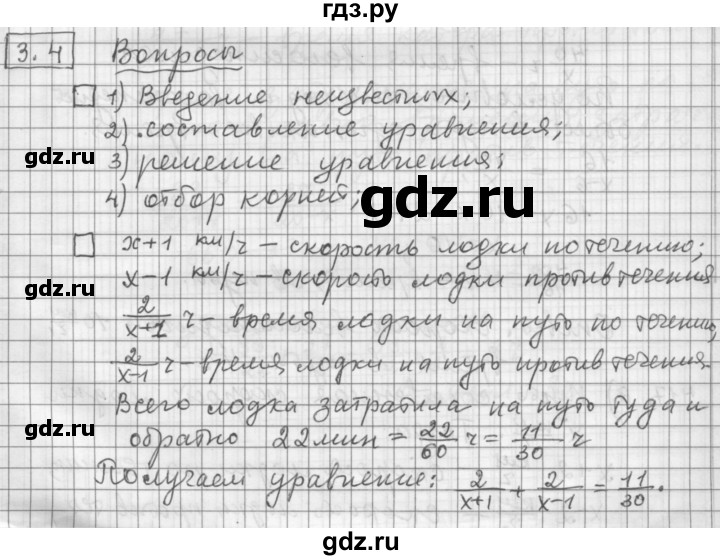 гдз.ру
3.4 Вопросы
1) Введение неизвестных;
2) составление уравнения;
gdz.ru gdz.ru
3) решение уравнения;
4) отбор корней;
gdz.ru
x+1 км/ч – скорость лодки по течению;
x–1 км/ч – скорость лодки против течения
2/(x+1) ч – время лодки на путь по течению,
gdz.ru gdz.ru
2/(x–1) ч – время лодки на путь против течения.
Всего лодка затратила на путь туда и
обратно 22 мин = 22/60 ч = 11/30 ч
gdz.ru gdz.ru
Получаем уравнение: 2/(x+1) + 2/(x–1) = 11/30.
gdz.ru